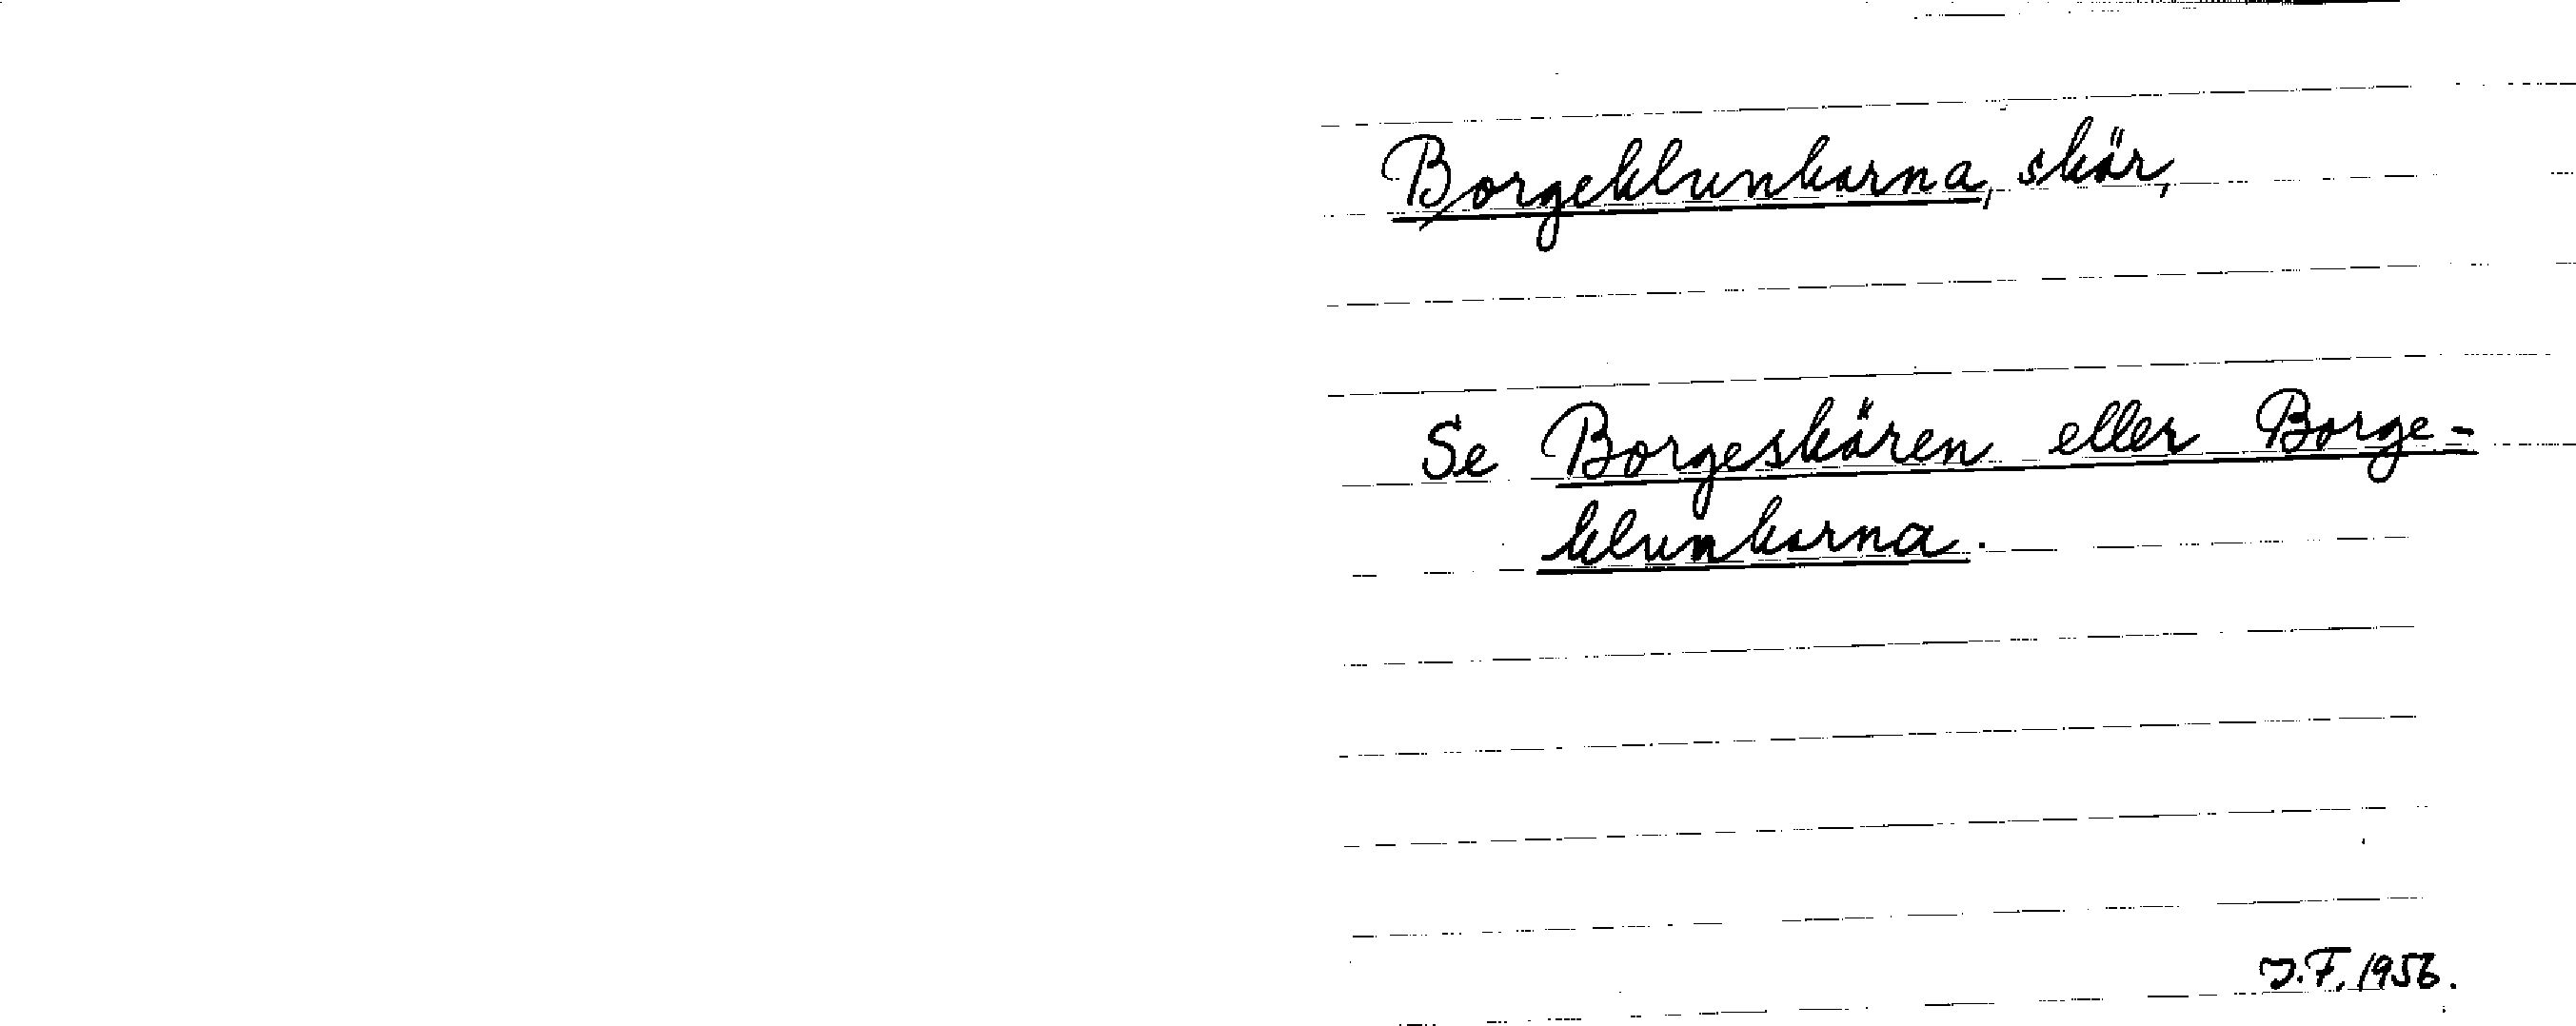 Borgeklunkarna, skär,
Se Borgeskären eller Borge-
klunkarna.
J.F. 1956.